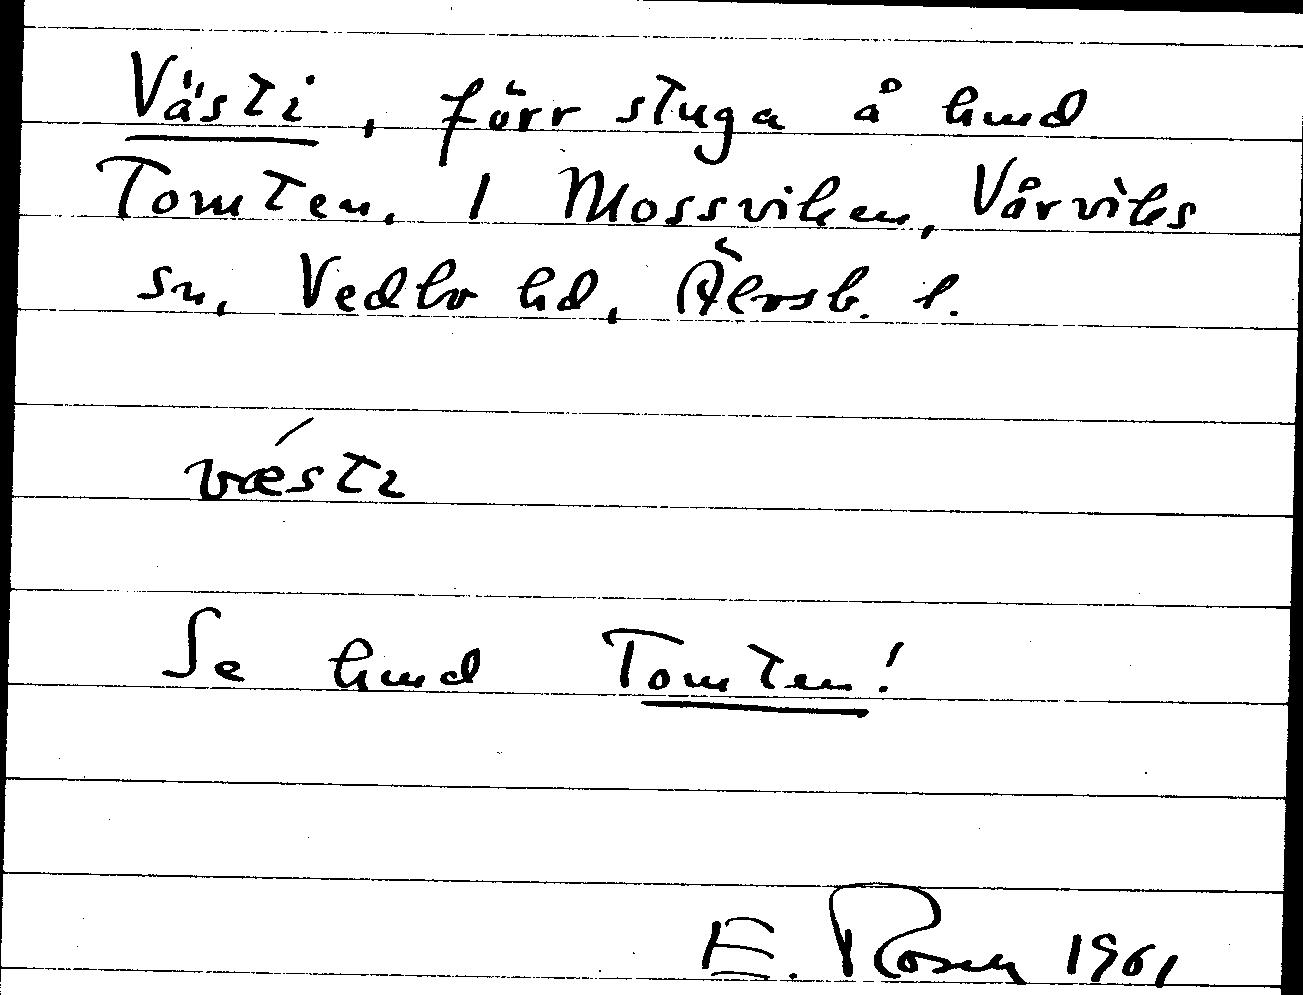 Västi, förr stuga å hmd
Tomten. 1 Mossviken, Vårviks
sn, Vedbo hd, Älvsb. l.
vǽstı
Se hmd Tomten!
E. Rosen 1961